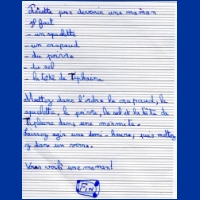 Recette pour devenir une maman
Il faut
- un squelette
- un crapaud
- du poivre
- du sel
- la tête de Tiphaine
Mettez dans l'ordre le crapaud, le
squelette, le poivre, le sel et la tête de
Tiphaine dans une marmite.
Laissez agir une demi-heure, puis mettez
dans un verre.
Vous voilà une maman!